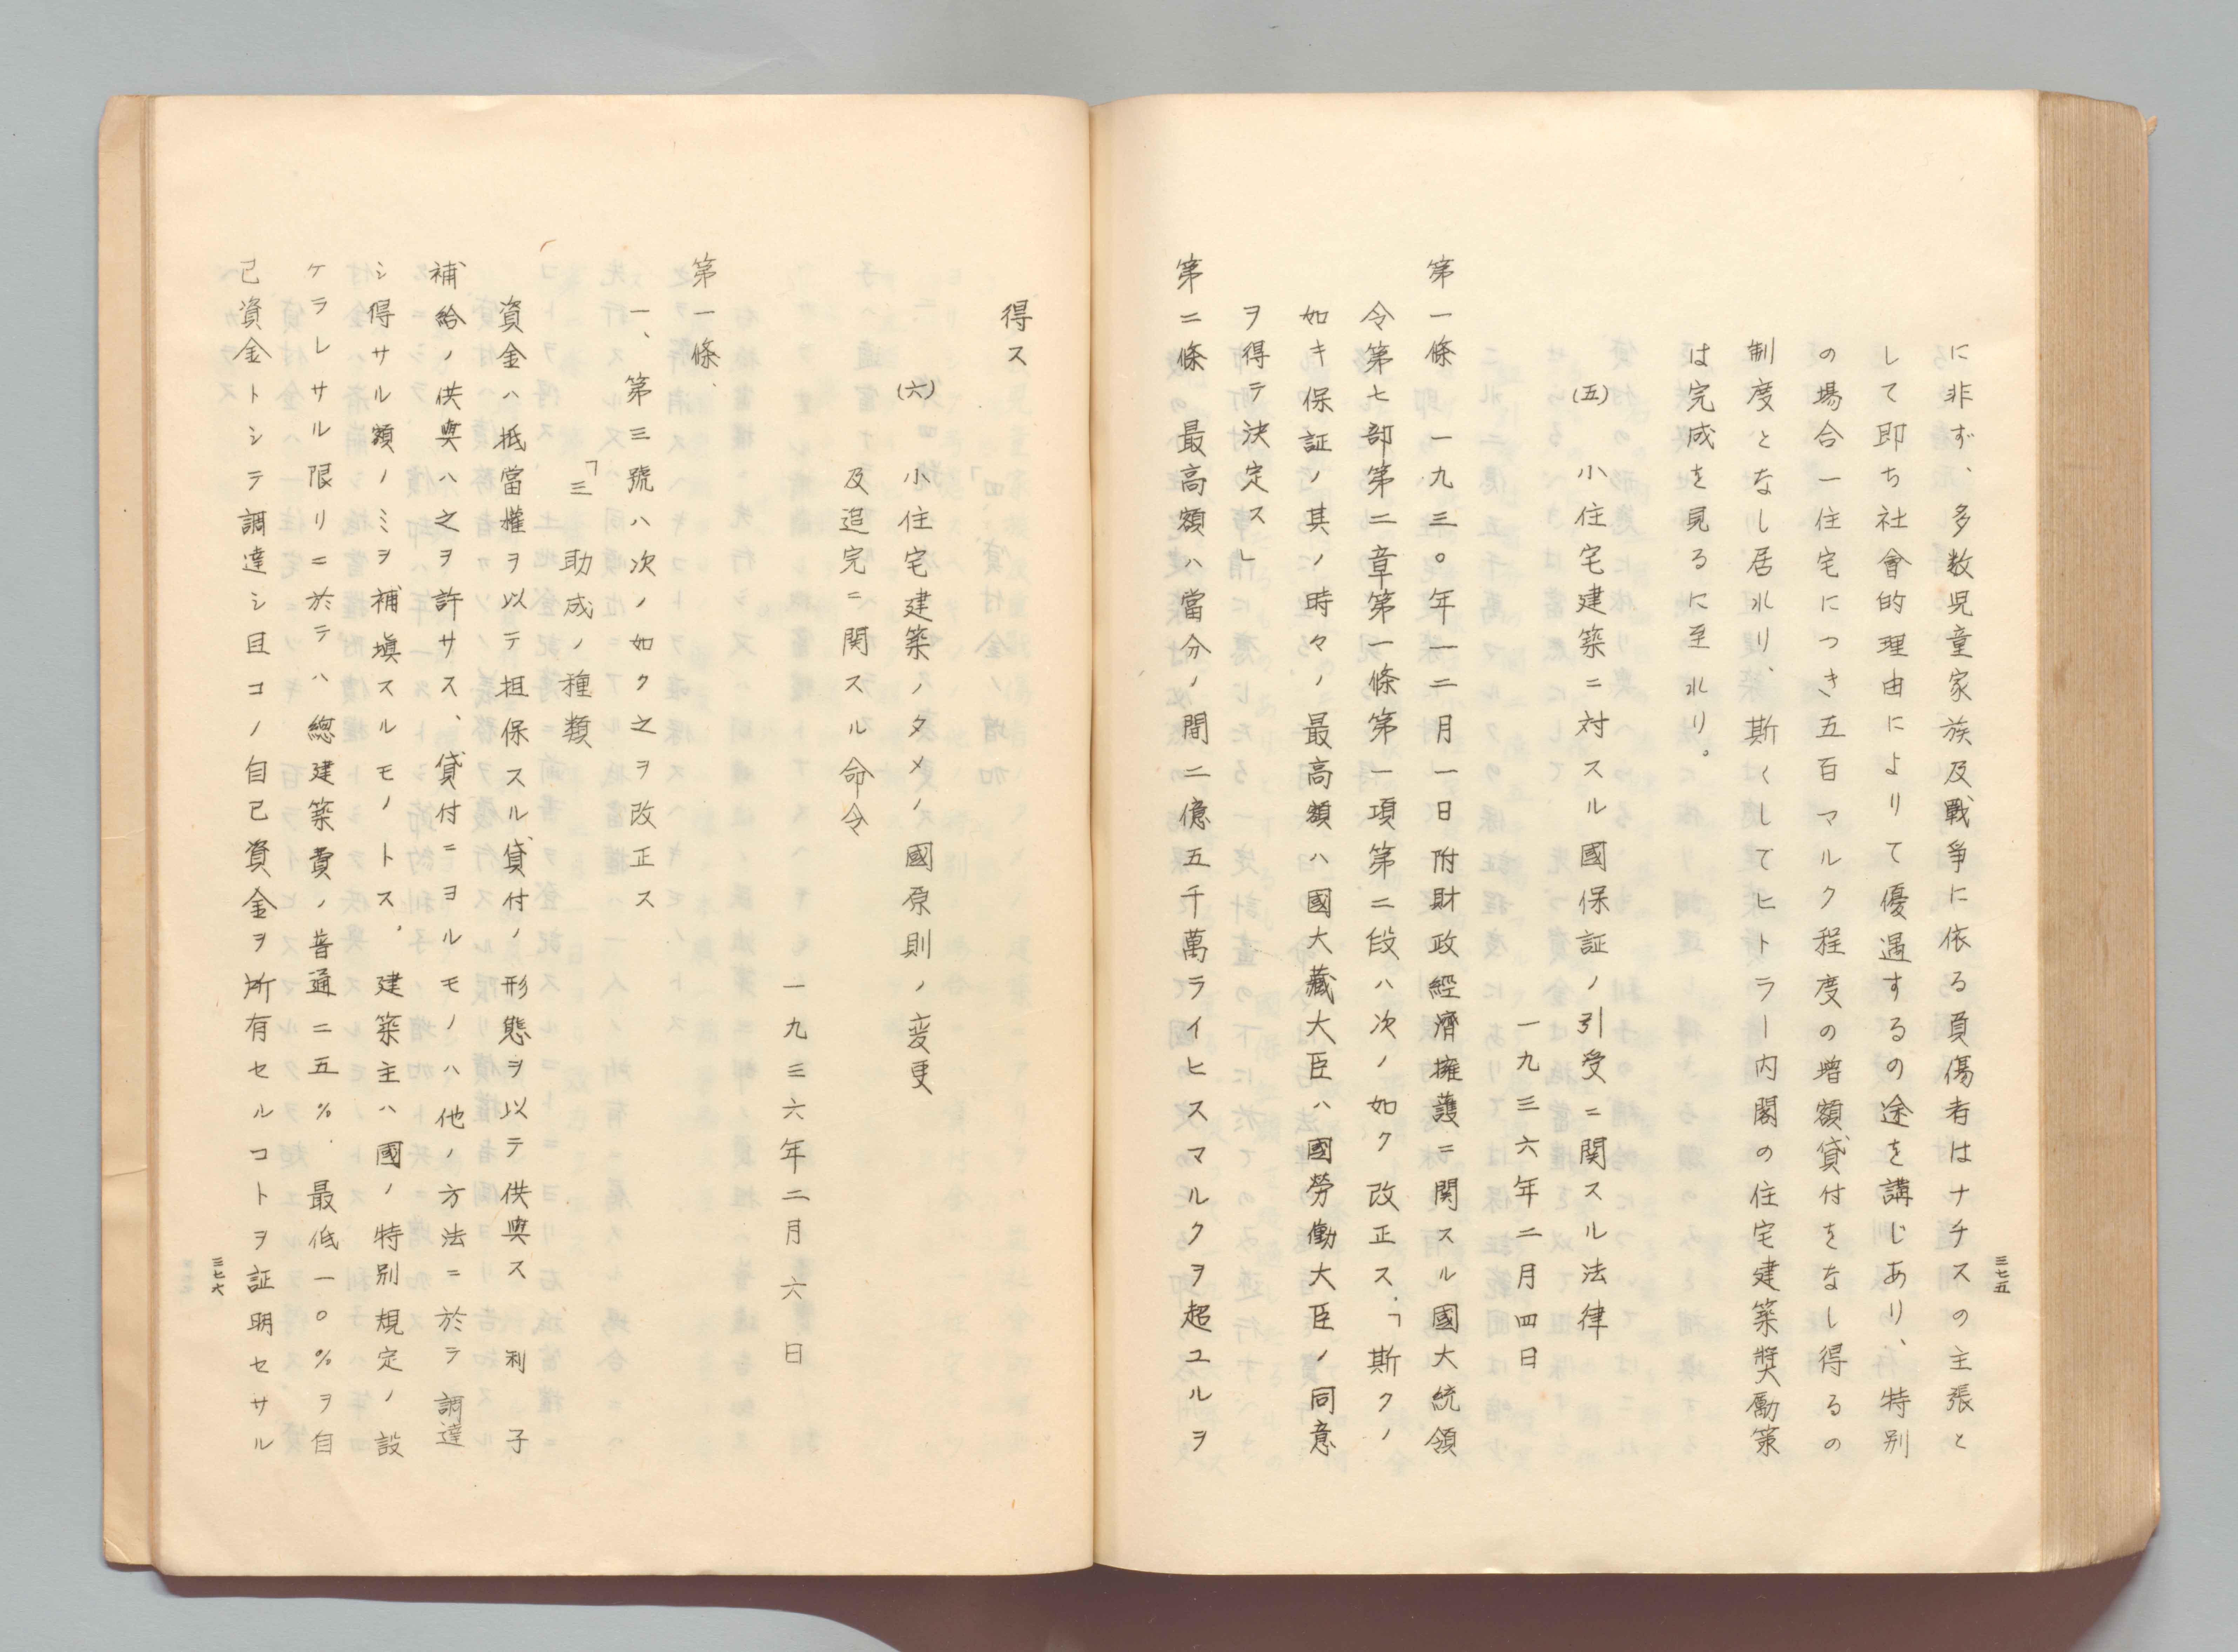 に非ず、多数児童家族及戰争に依る負傷者はナチスの主張と
して即ち社會的理由によりて優遇するの途を講じあり、特别
の場合一住宅につき五百マルク程度の増額貸付をなし得るの
制度となし居れり、斯くしてヒトラー内閣の住宅建築奬勵策
は完成を見るに至れり。
(五) 小住宅建築ニ対スル國保証ノ引受ニ関スル法律
一九三六年二月四日
第一條 一九三〇年一二月一日附財政經濟擁護ニ関スル國大統領
令第七部第二章第一條第一項第二段ハ次ノ如ク改正ス.「斯クノ
如キ保証ノ其ノ時々ノ最高額ハ國大藏大臣ハ國勞働大臣ノ同意
ヲ得テ決定ス」
第二條 最高額ハ當分ノ間二億五千萬ライヒスマルクヲ超ユルヲ
三七五
得ス
(六) 小住宅建築ノタメノ國原則ノ変更
及追完ニ関スル命令
一九三六年二月六日
第一條、
一、第三號ハ次ノ如ク之ヲ改正ス
「三 助成ノ種類
資金ハ抵當權ヲ以テ担保スル貸付ノ形態ヲ以テ供與ス 利子
補給ノ供與ハ之ヲ許サス、貸付ニヨルモノハ他ノ方法ニ於テ調達
シ得サル額ノミヲ補塡スルモノトス。建築主ハ國ノ特别規定ノ設
ケラレサル限リニ於テハ總建築費ノ普通二五%.最低一〇%ヲ自
己資金トシテ調達シ且コノ自己資金ヲ所有セルコトヲ証明セサル
三七六